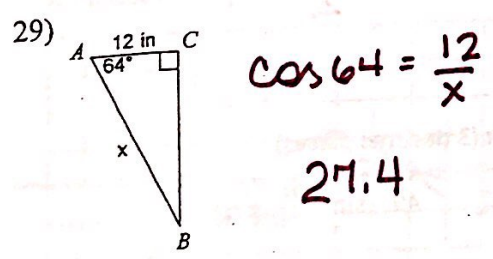 29)
12 in
A
C
64°
x
B
cos 64 = 12/x
27.4